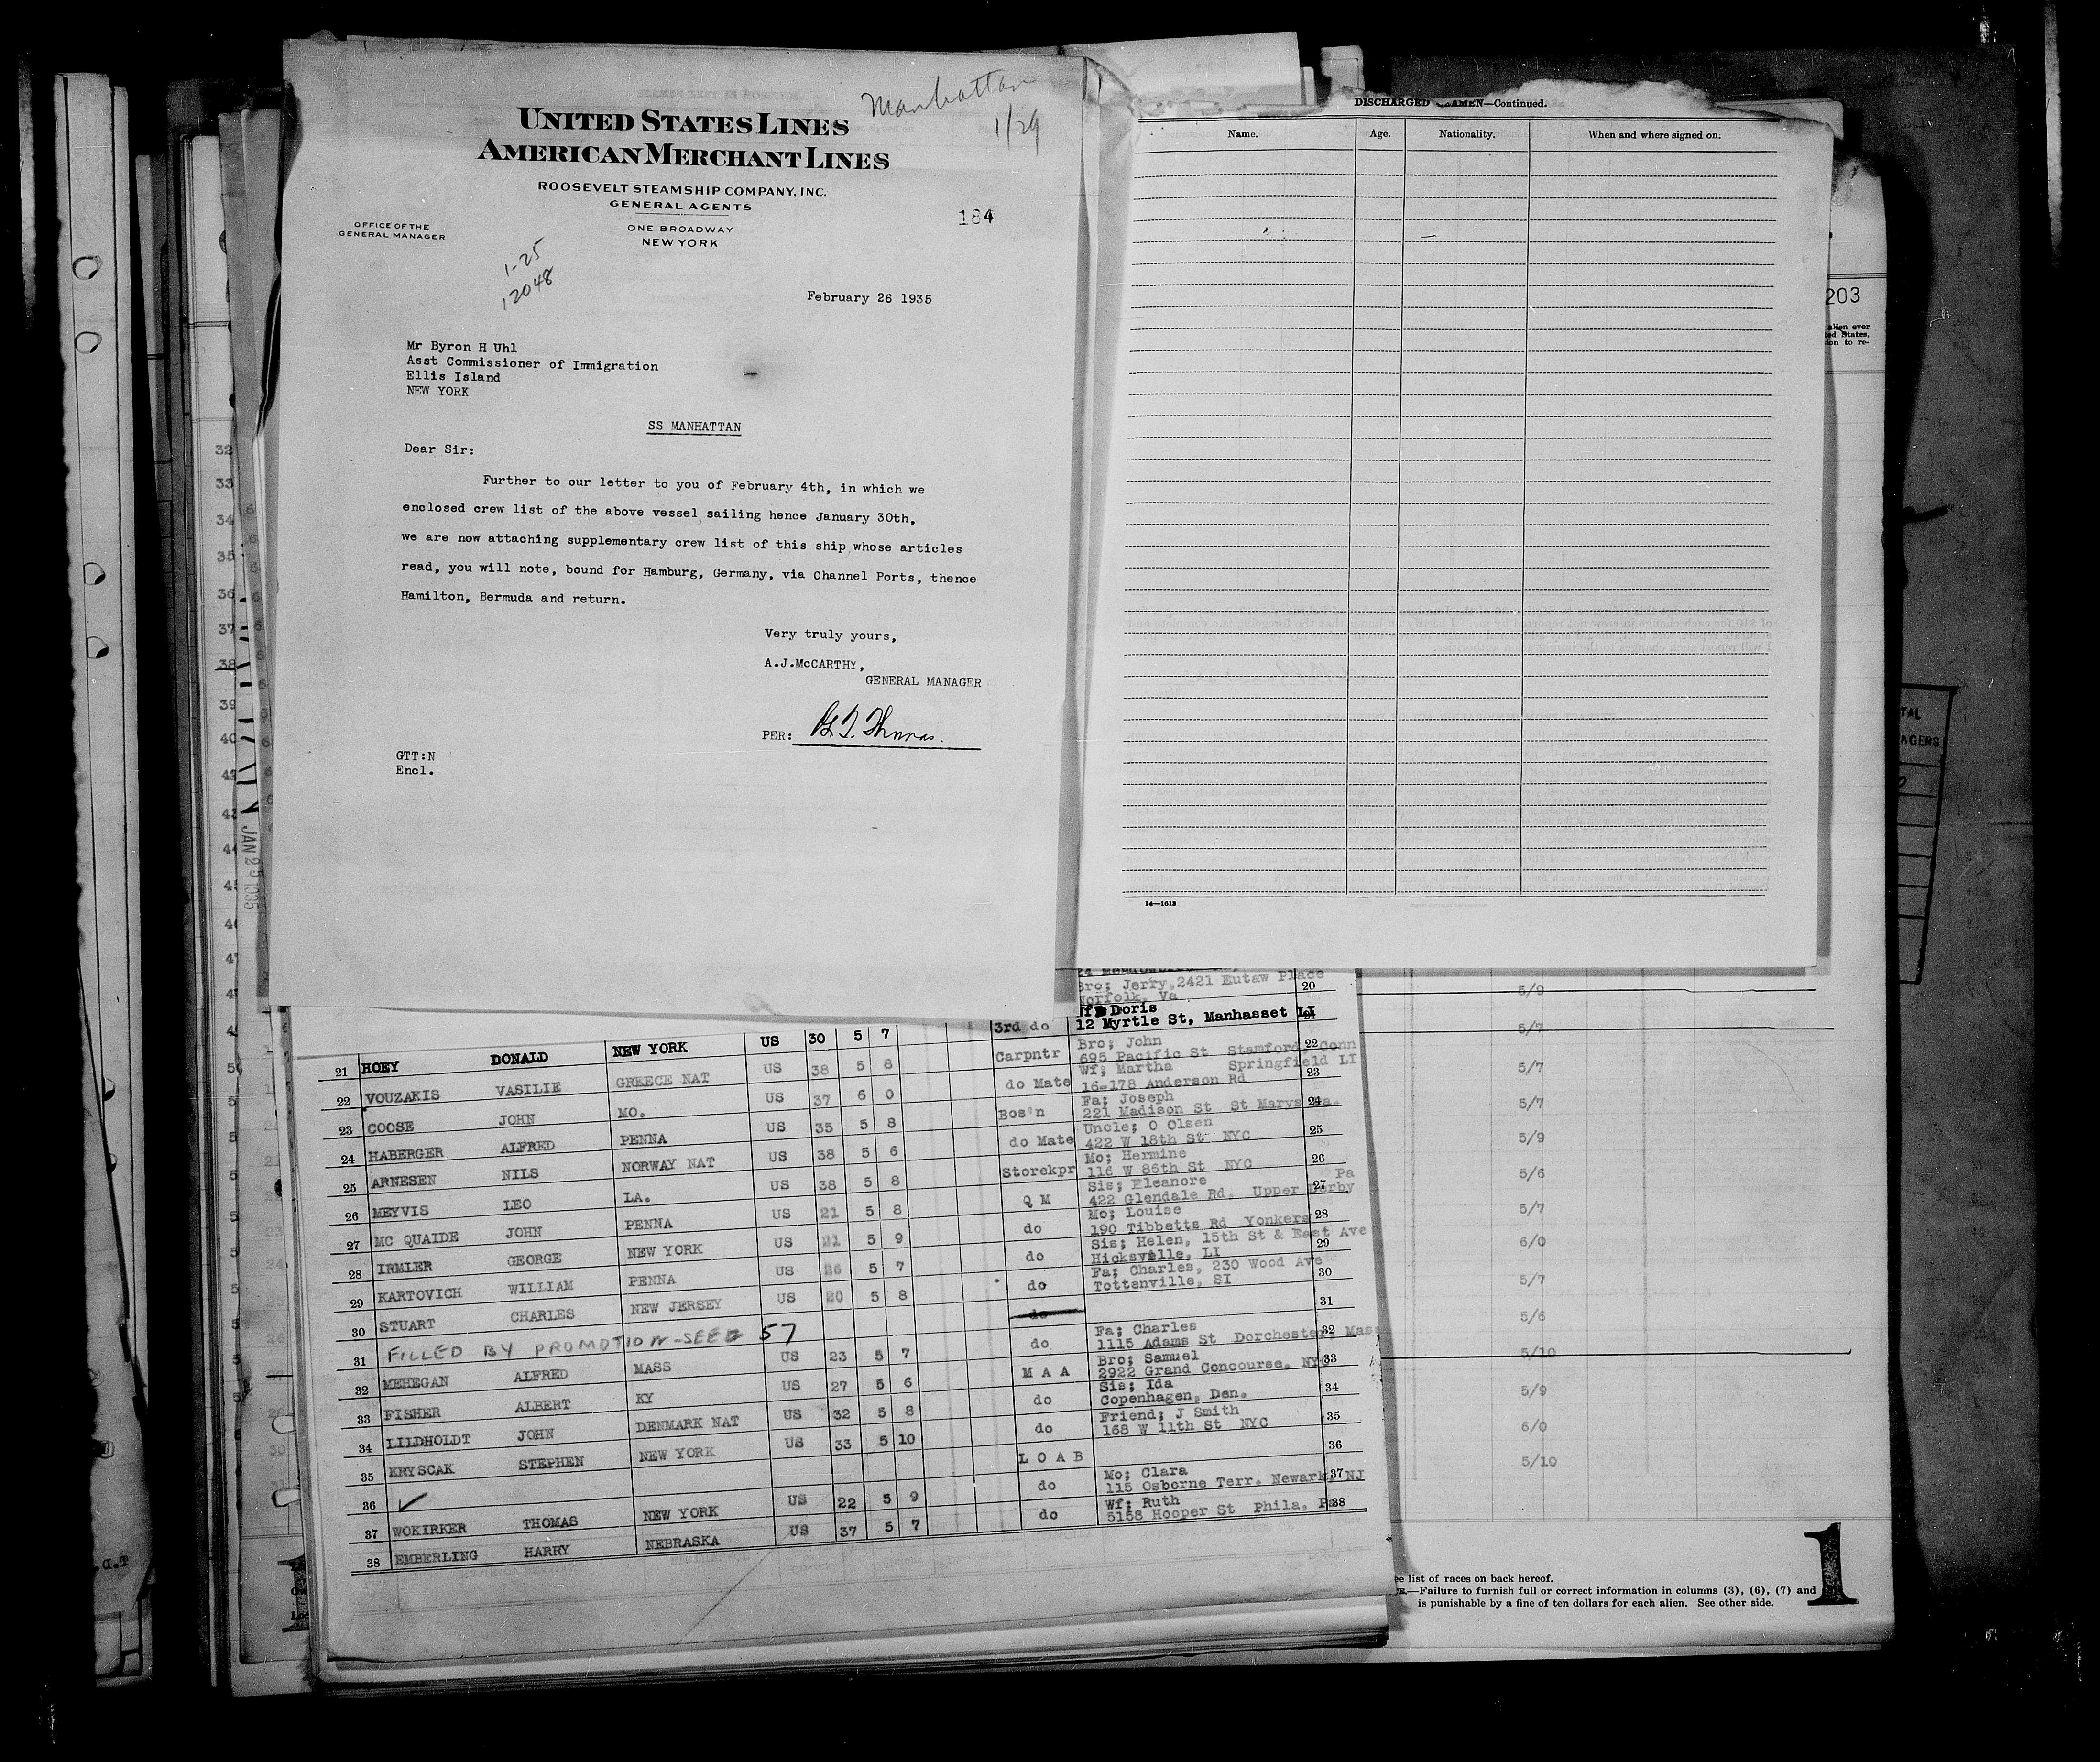 Manhattan
1/29
UNITED STATES LINES
AMERICAN MERCHANT LINES
ROOSEVELT STEAMSHIP COMPANY, INC.
GENERAL AGENTS
OFFICE OF THE
GENERAL MANAGER
ONE BROADWAY
NEW YORK
184
1-25
12048
February 26 1935
Mr Byron H Uhl
Asst Commissioner of Immigration
Ellis Island
NEW YORK
SS MANHATTAN
Dear Sir:
Further to our letter to you of February 4th, in which we
enclosed crew list of the above vessel sailing hence January 30th,
we are now attaching supplementary crew list of this ship whose articles
read, you will note, bound for Hamburg, Germany, via Channel Ports, thence
Hamilton, Bermuda and return.
Very truly yours,
A.J.McCARTHY,
GENERAL MANAGER
PER: G.T. Thomas.
GTT:N
Encl.
DISCHARGED SEAMEN—Continued.
Name. Age. Nationality. When and where signed on.
14—1613
203
alien ever
ted States,
ion to re-
JAN 25 1935
Bro; Jerry, 2421 Eutaw Place
Norfolk, Va 20
21 HOEY DONALD NEW YORK US 30 5 7 3rd do Wf; Doris
12 Myrtle St, Manhasset LI 21
22 VOUZAKIS VASILIE GREECE NAT US 38 5 8 Carpntr Bro; John
695 Pacific St Stamford Conn 22
23 COOSE JOHN MO. US 37 6 0 do Mate Wf; Martha Springfield LI
16-178 Anderson Rd 23
24 HABERGER ALFRED PENNA US 35 5 8 Bos'n Fa; Joseph
221 Madison St St Marys Pa. 24
25 ARNESEN NILS NORWAY NAT US 38 5 6 do Mate Uncle; O Olsen
422 W 18th St NYC 25
26 MEYVIS LEO LA. US 38 5 8 Storekpr Mo; Hermine
116 W 86th St NYC 26
27 MC QUAIDE JOHN PENNA US 21 5 8 Q M Sis; Eleanore Pa
422 Glendale Rd. Upper Derby 27
28 IRMLER GEORGE NEW YORK US 21 5 9 do Mo; Louise
190 Tibbetts Rd Yonkers 28
29 KARTOVICH WILLIAM PENNA US 26 5 7 do Sis; Helen, 15th St & East Ave
Hicksville, LI 29
30 STUART CHARLES NEW JERSEY US 20 5 8 do Fa; Charles, 230 Wood Ave
Tottenville, SI 30
31 FILLED BY PROMOTION-SEE# 57 do 31
32 MEHEGAN ALFRED MASS US 23 5 7 do Fa; Charles
1115 Adams St Dorchester, Mass 32
33 FISHER ALBERT KY US 27 5 6 M A A Bro; Samuel
2922 Grand Concourse, NYC 33
34 LILDHOLDT JOHN DENMARK NAT US 32 5 8 do Sis; Ida
Copenhagen, Den. 34
35 KRYSCAK STEPHEN NEW YORK US 33 5 10 do Friend; J Smith
168 W 11th St NYC 35
36 L O A B 36
37 WOKIRKER THOMAS NEW YORK US 22 5 9 do Mo; Clara
115 Osborne Terr. Newark, NJ 37
38 EMBERLING HARRY NEBRASKA US 37 5 7 do Wf; Ruth
5158 Hooper St Phila, Pa 38
5/9
5/7
5/7
5/7
5/9
5/6
5/7
6/0
5/7
5/6
5/10
5/9
6/0
5/10
ee list of races on back hereof.
—Failure to furnish full or correct information in columns (3), (6), (7) and
is punishable by a fine of ten dollars for each alien. See other side.
1